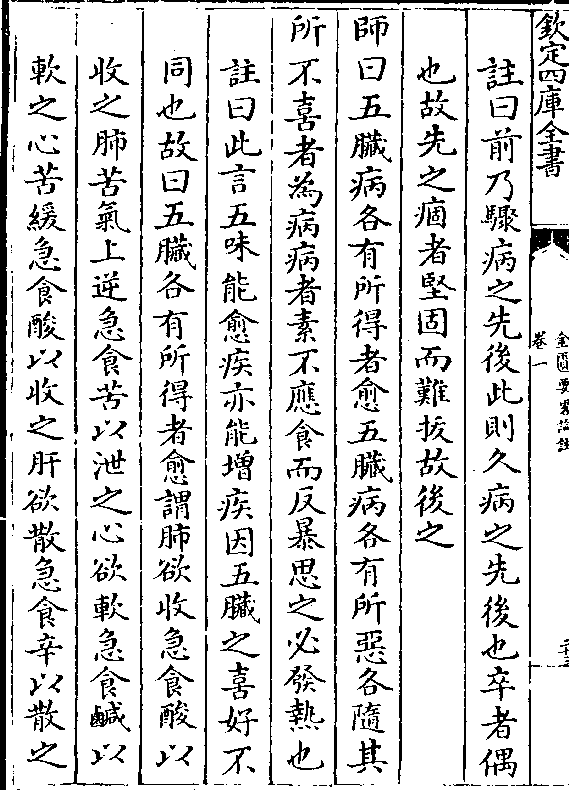 欽定四庫全書
金匱要畧論註
卷一
註曰前乃驟病之先後此則久病之先後也卒者偶
也故先之痼者堅固而難拔故後之
師曰五臟病各有所得者愈五臟病各有所惡各隨其
所不喜者為病病者素不應食而反暴思之必發熱也
註曰此言五味能愈疾亦能增疾因五臟之喜好不
同也故曰五臟各有所得者愈謂肺欲收急食酸以
收之肺苦氣上逆急食苦以泄之心欲軟急食鹹以
軟之心苦緩急食酸以收之肝欲散急食辛以散之